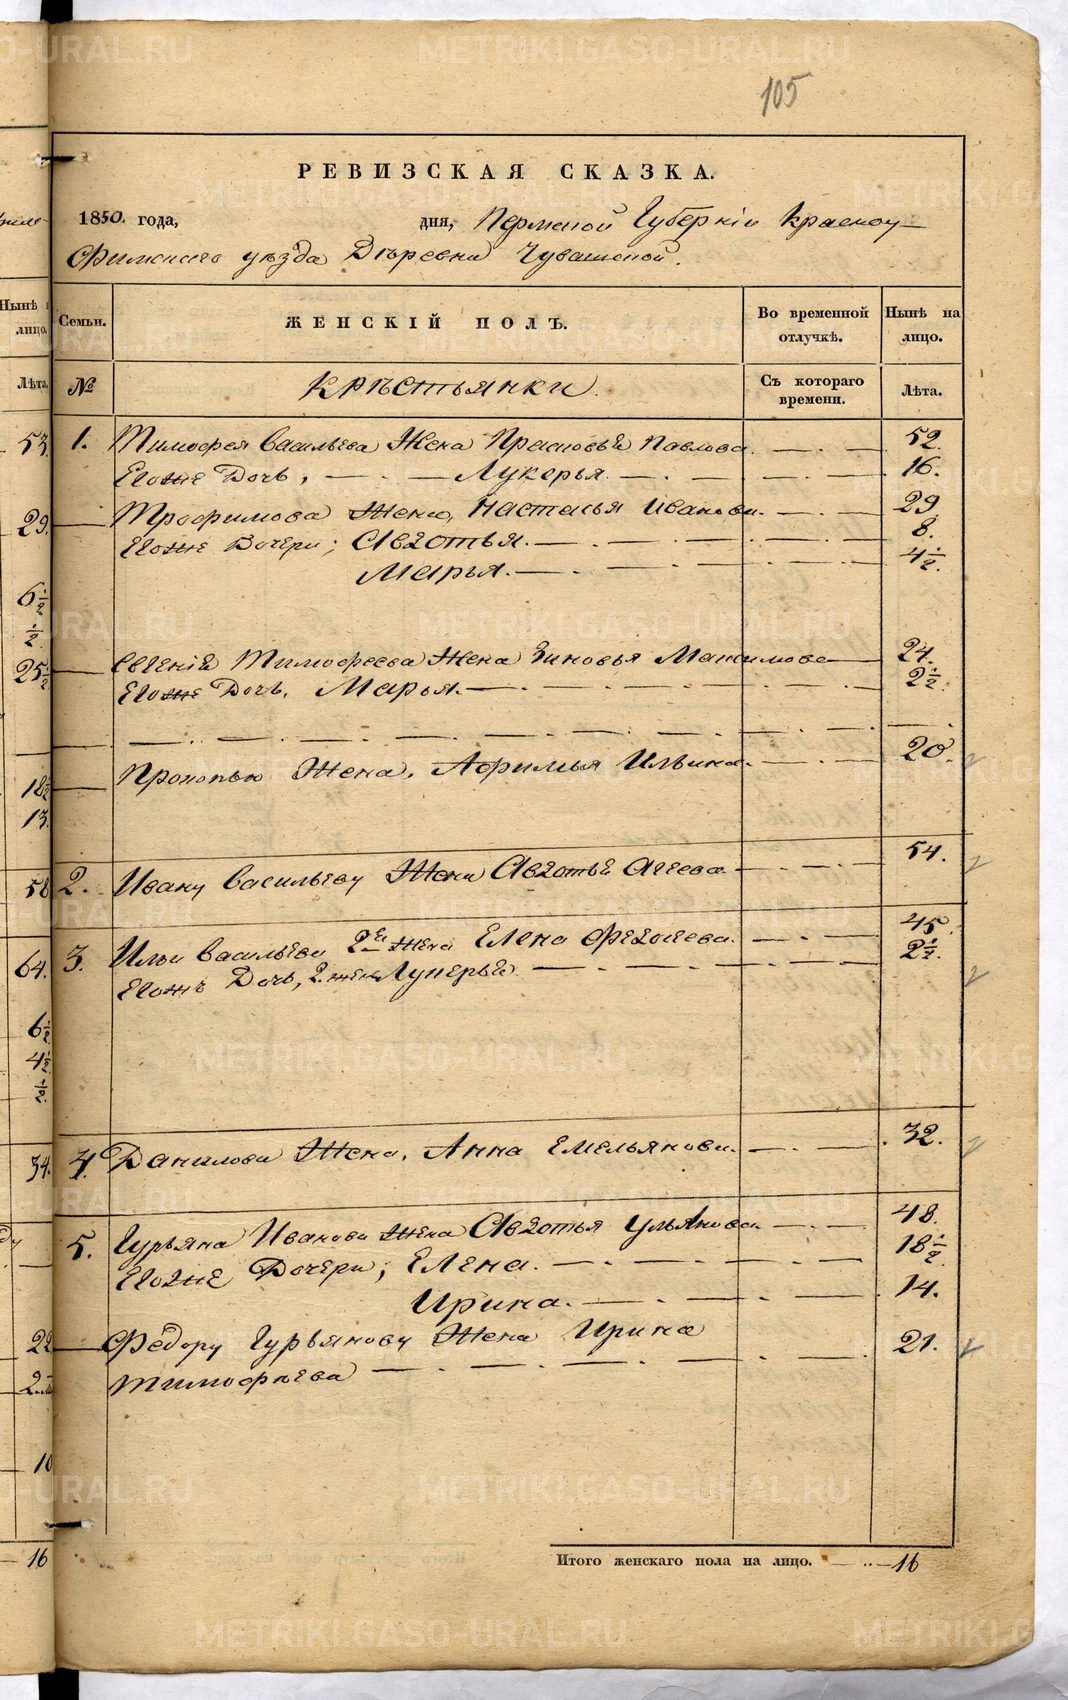 105
РЕВИЗСКАЯ СКАЗКА.
1850. года, дня, Пермской Губерніи Красноу-
фимскаго уезда Деревни Чувашской.
Нынѣ
лицо.
Семьи. ЖЕНСКІЙ ПОЛЪ. Во временной отлучкѣ. Нынѣ на лицо.
Лѣта. № Крестьянки. Съ котораго времени. Лѣта.
53. 1. Тимофея Васильева Жена Прасковья Павлова 52.
Егоже Дочь, Лукерья. 16.
29. Трофимова Жена, Настасья Иванова. 29
Егоже Дочери; Авдотья. 8.
Марья. 4 1/2.
6 1/2
1/2
25 1/2 Евгеній Тимофеева Жена Зиновья Максимова 24.
Егоже Дочь, Марья. 2 1/2.
18 1/2 Прокопью Жена, Афимья Ильина. 20.
13.
58 2. Ивану Васильеву Жена Авдотья Агеева. 54.
64. 3. Ильи Васильева 2й Жена Елена Федосеева. 45.
Егожъ Дочь, 2. жены Лукерья 2 1/2.
6 1/2
4 1/2
34. 4. Данилова Жена, Анна Емельянова. 32.
5. Гурьяна Иванова Жена Авдотья Ульянова 48.
Егоже Дочери; Елена. 18 1/2
Ирина. 14.
22 Федору Гурьянову Жена Ирина 21.
Тимофеева
10
16 Итого женскаго пола на лицо. 16
METRIKI.GASO-URAL.RU